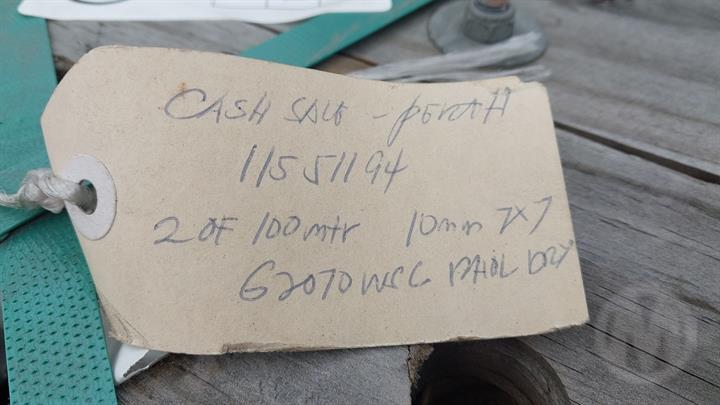 CASH SALE - PERTH
11551194
2 OF 100mtr 10mm 7x7
G2070 WSC DRY